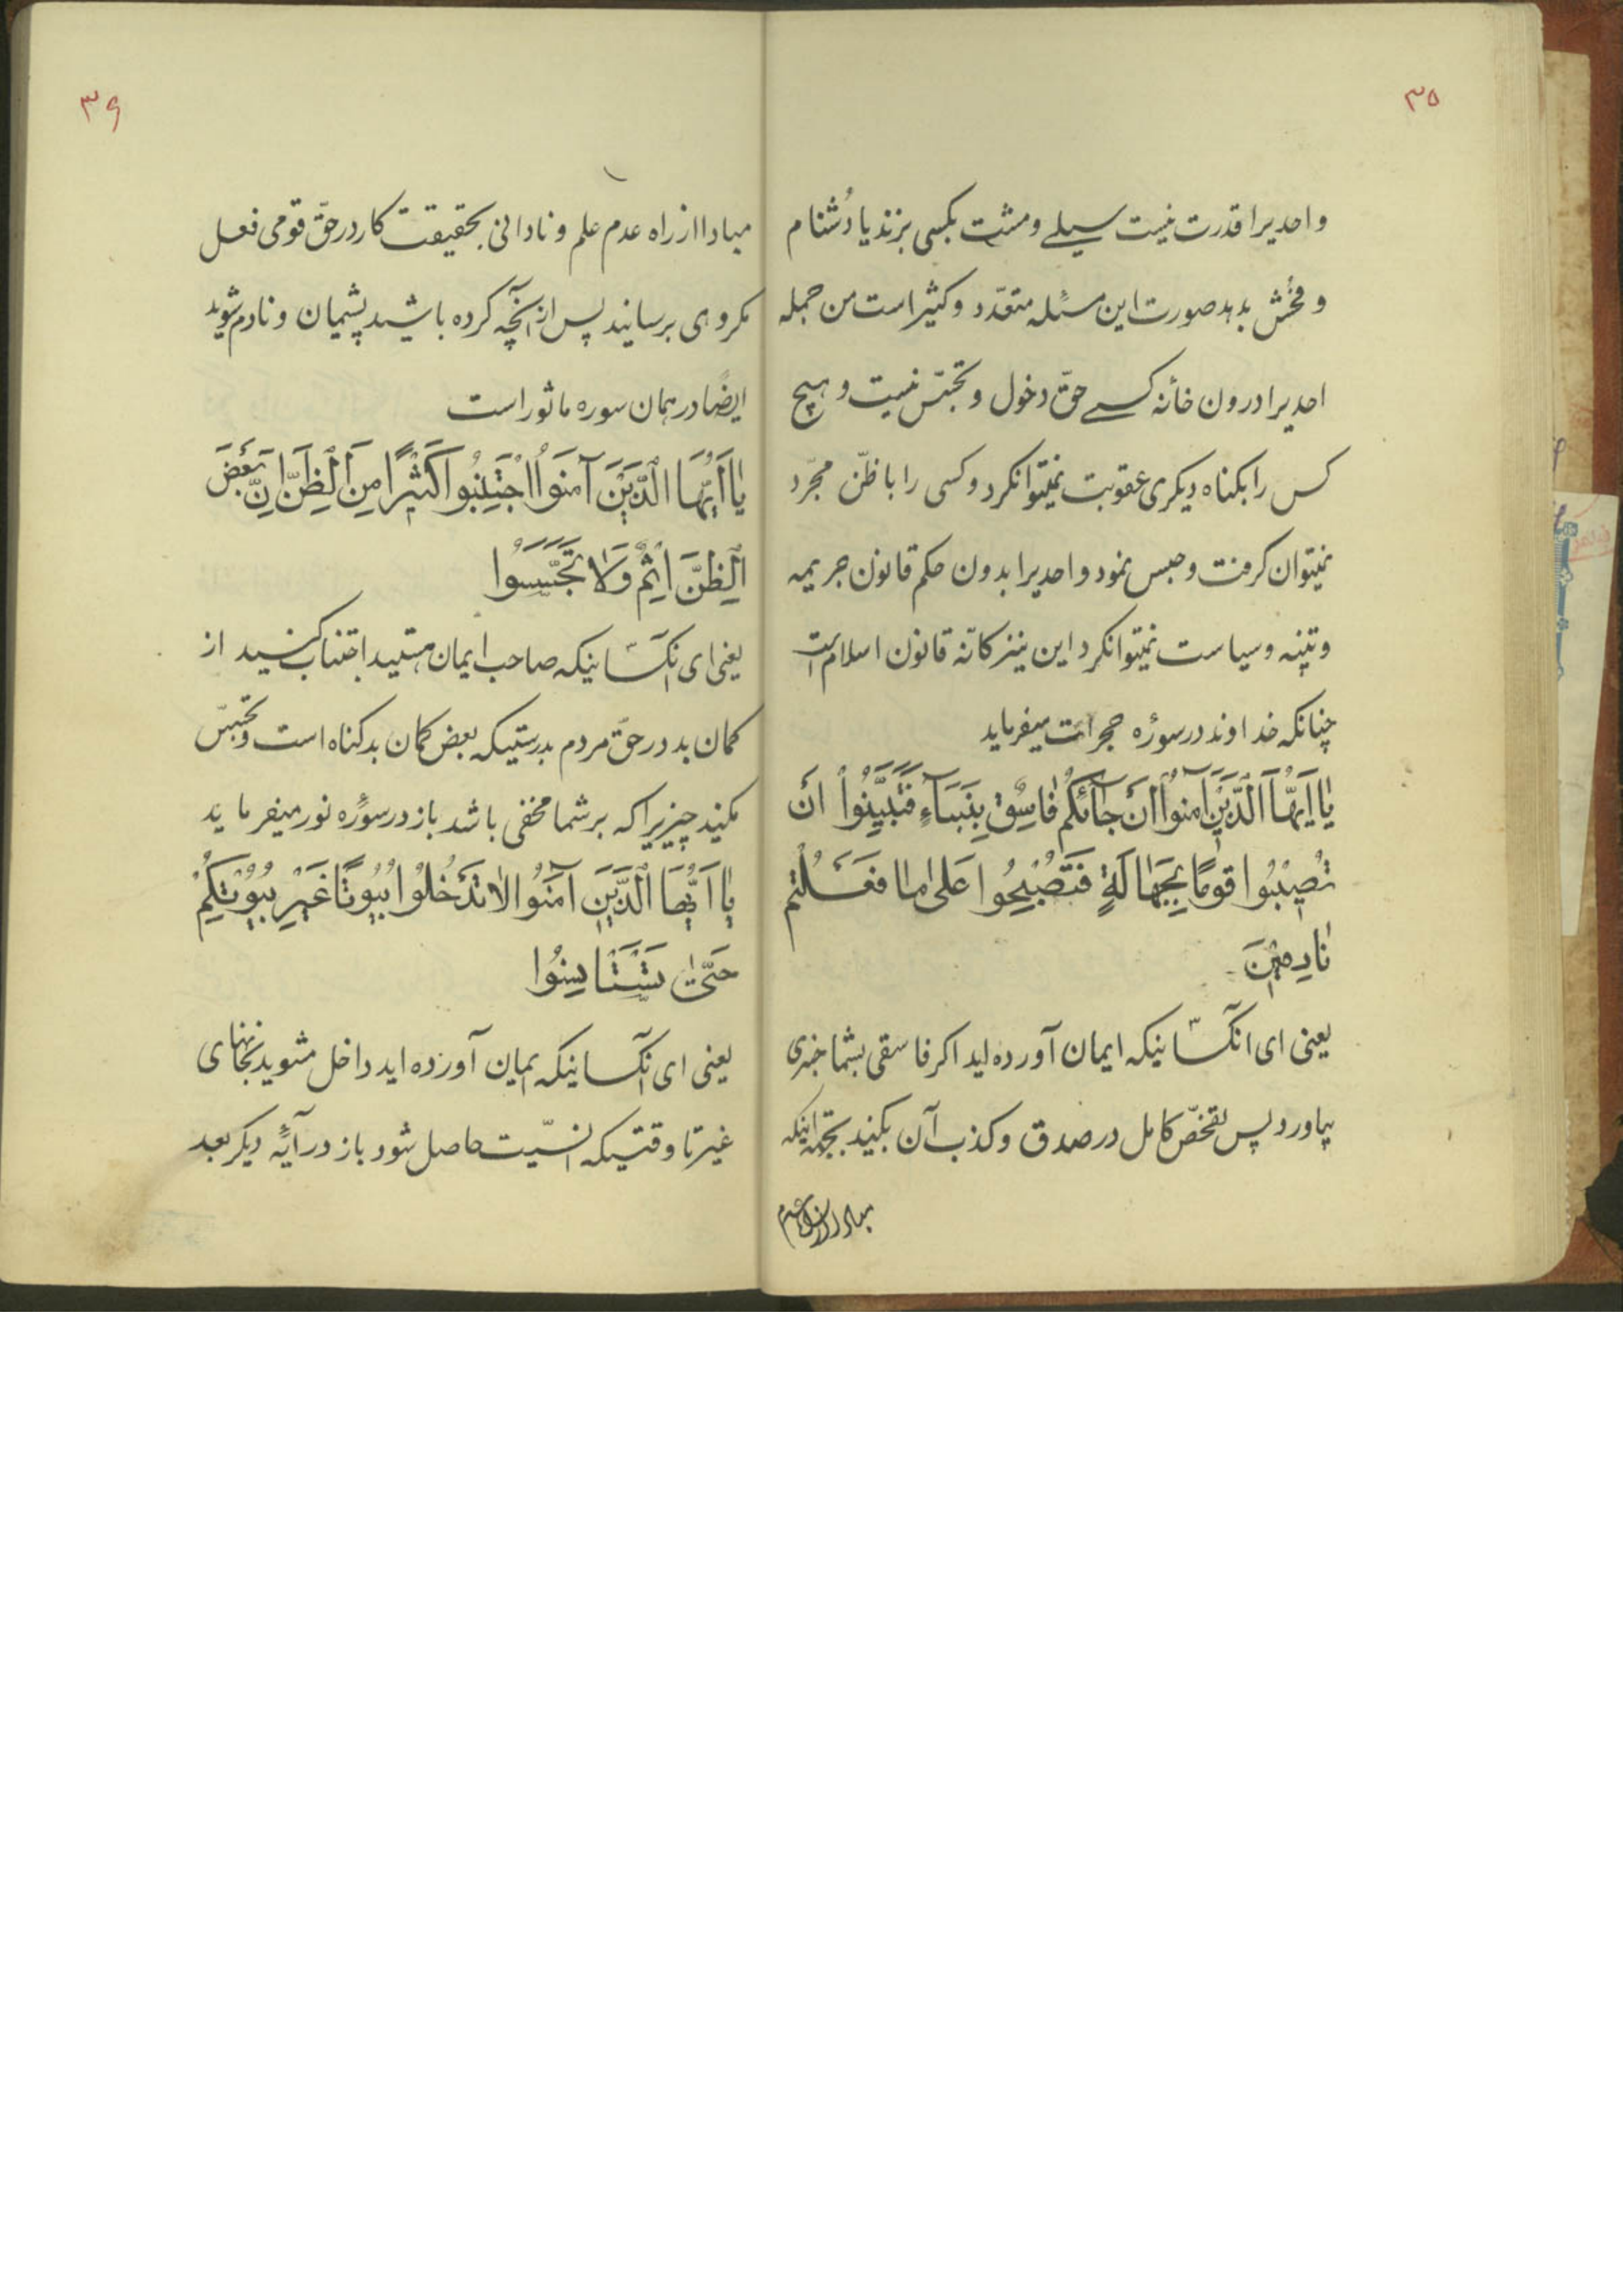 ۳۵
واحدیرا قدرت نیست سیلے ومشت بکسی بزند یا دُشنام
و فحش بدهد صورت این مسئله متعّدد و کثیر است من جمله
احدیرا درون خانٔه کسے حقّ دخول و تجسّس نیست و هیچ
کس را بکناه دیکری عقوبت نمیتوانکرد و کسی را با ظنّ مجرّد
نمیتوان کرفت و حبس نمود و احدیرا بدون حکم قانون جریمه
و تنبیه و سیاست نمیتوانکرد این نیز کانّه قانون اسلام است
چنانکه خداوند در سورٔه حجرات میفرماید
یٰا اَیُّهَا الَّذینَ آمنوُا اِنْ جآئَکُمْ فٰاسِقٌ بِنَبَاءٍ فَتَبَیَّنُوا اَنْ
تُصیٖبُوا قومًا بِجَهٰالَةٍ فَتُصْبِحُوا عَلیٰ مٰا فَعَلْتُم
نٰادِمیٖنَ
یعنی ای انکسّانیکه ایمان آورده اید اکر فاسقی بشما خبری
بیاورد پس تفحّص کامل در صدق و کذب آن بکنید بجهة اینکه
مبادا از راه عدم
۳۶
مبادا از راه عدم علم و نادانی بحقیقت کار در حقّ قومی فعل
مکروهی برسانید پس از آنچه کرده باشید پشیمان و نادم شوید
ایضًا در همان سوره ماثور است
یٰا اَیُّهَا الَّذیٖنَ آمنَوُا اجْتَنِبُوا کَثیٖرًا مِنَ الظَّنِّ اِنَّ بَعْضَ
الظَّنِّ اِثْمٌ وَلاٰ تَجَسَّسُوا
یعنی ای انکسّانیکه صاحب ایمان هستید اجتناب کنید از
کمان بد در حقّ مردم بدرستیکه بعض کمان بد کناه است و تجسّس
مکنید چیزیرا که بر شما مخفی باشد باز در سورٔه نور میفرماید
یٰا اَیُّهَا الَّذیٖنَ آمَنُوا لاٰ تَدْخُلوُا بُیُوتًا غَیْرِ بُیوُتِکُمْ
حَتّیٰ تَسْتَاْنِسُوا
یعنی ای آنکسانیکه ایمان آورده اید داخل مشوید بخانهای
غیر تا وقتیکه انسیّت حاصل شود باز در آیٔه دیکر بعد